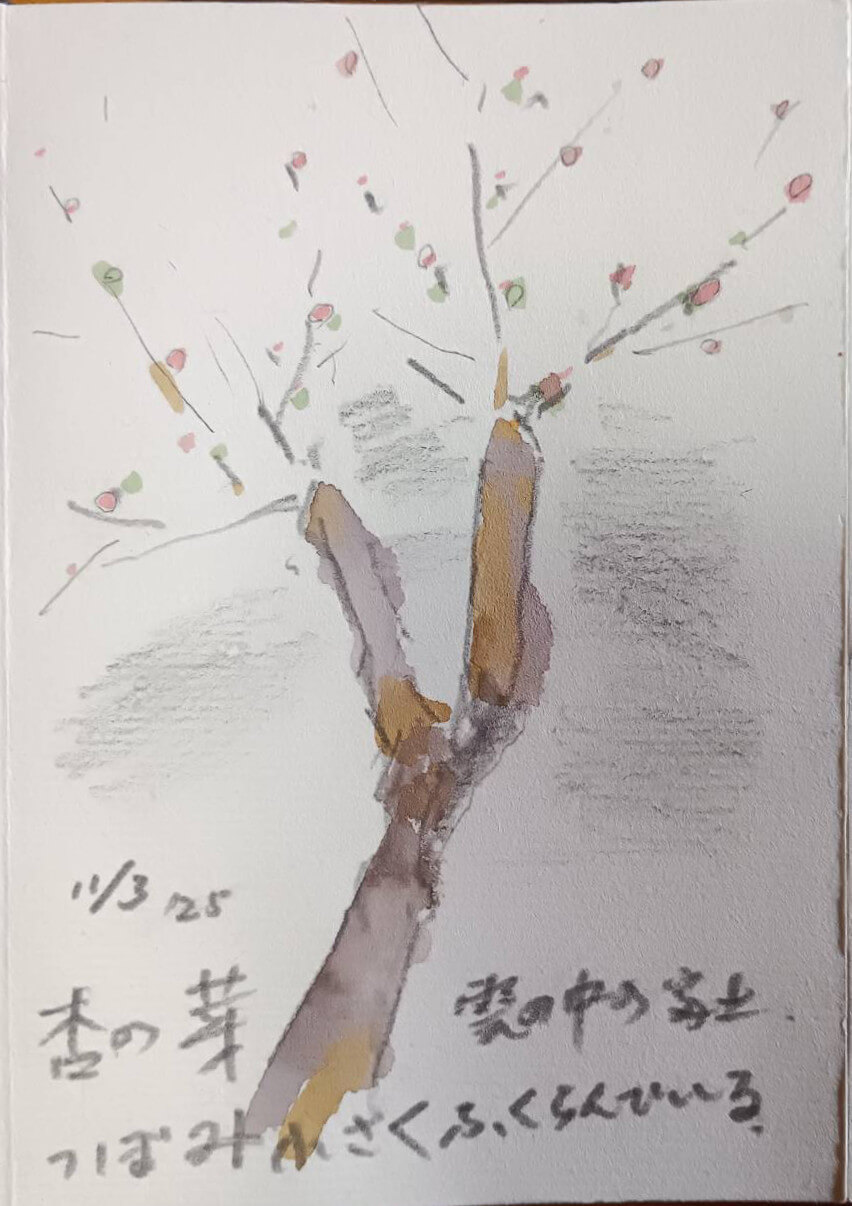 11/3 '25
杏の芽 雲の中の富士.
つぼみ小さくふくらんでいる.